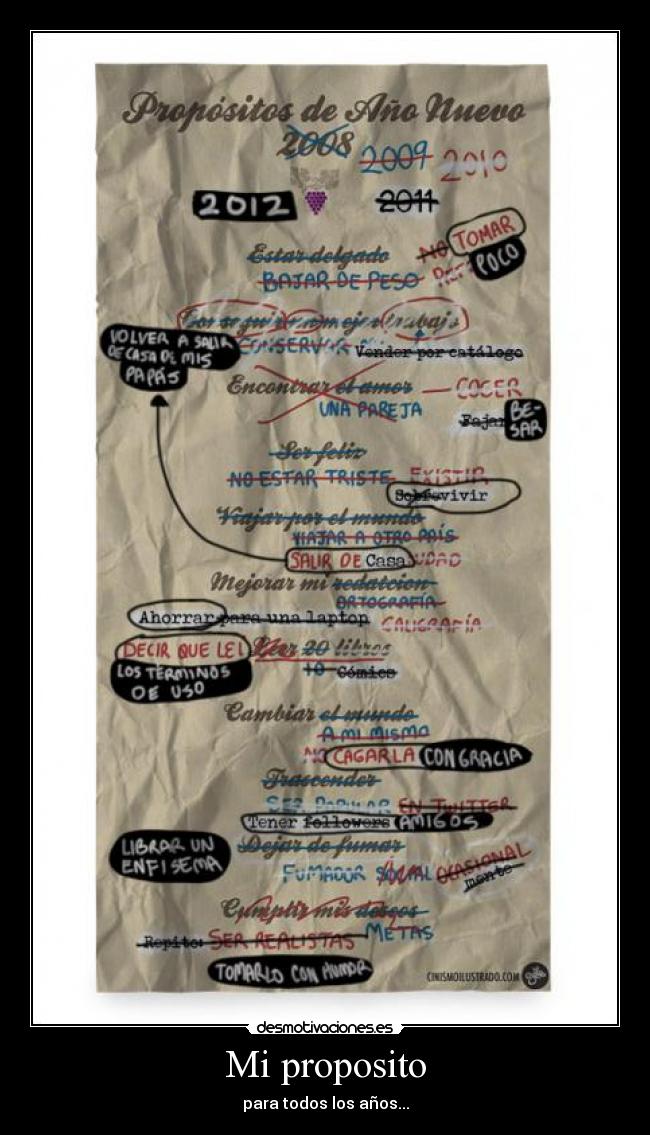 Propósitos de Año Nuevo
2008 2009 2010
2012 2011
Estar delgado NO TOMAR
BAJAR DE PESO POCO
Conseguir un mejor trabajo
VOLVER A SALIR
DE CASA DE MIS
PAPÁS
CONSERVAR Vender por catálogo
Encontrar el amor — COGER
UNA PAREJA
Fajar BE-
SAR
Ser feliz
NO ESTAR TRISTE EXISTIR
Sobrevivir
Viajar por el mundo
VIAJAR A OTRO PAÍS
SALIR DE Casa UDAD
Mejorar mi redatcion
ORTOGRAFÍA
Ahorrar para una laptop CALIGRAFÍA
DECIR QUE LEI Leer 20 libros
LOS TÉRMINOS
DE USO
10 Cómics
Cambiar el mundo
A MI MISMO
NO CAGARLA CON GRACIA
Trascender
SER POPULAR EN TWITTER
Tener followers AMIGOS
LIBRAR UN
ENFISEMA
Dejar de fumar
FUMADOR SOCIAL OCASIONAL
mente
Cumplir mis deseos
METAS
Repito: SER REALISTAS
TOMARLO CON HUMOR
CINISMOILUSTRADO.COM
desmotivaciones.es
Mi proposito
para todos los años...